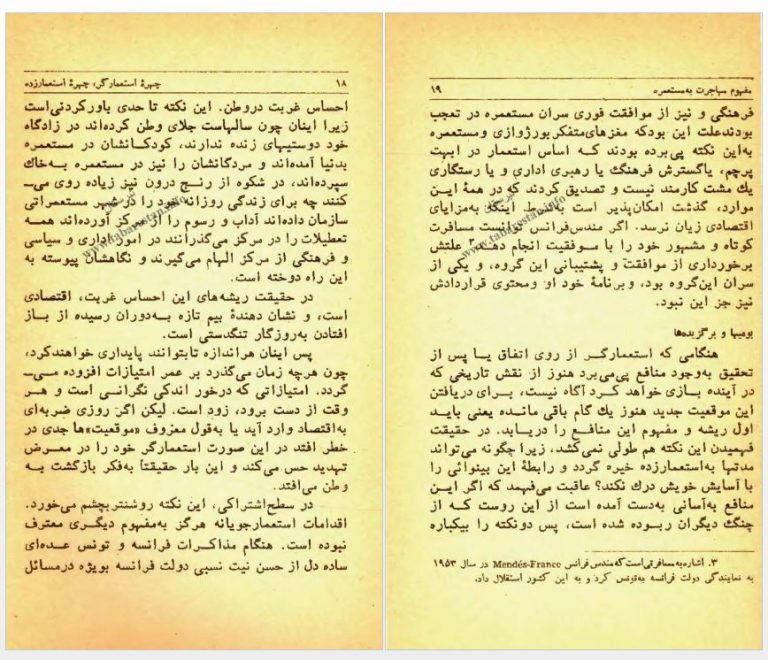 ۱۸ چهرهٔ استعمارگر، چهرهٔ استعمارزده
احساس غربت دروطن. این نکته تا حدی باورکردنی‌است
زیرا اینان چون سالهاست جلای وطن کرده‌اند در زادگاه
خود دوستیهای زنده ندارند، کودکانشان در مستعمره
بدنیا آمده‌اند و مردگانشان را نیز در مستعمره به‌خاك
سپرده‌اند، در شکوه از رنج درون نیز زیاده روی می‌ـ
کنند چه برای زندگی روزانه خود را در شهر مستعمراتی
سازمان داده‌اند آداب و رسوم را از مرکز آورده‌اند همـه
تعطیلات را در مرکز می‌گذرانند در امور اداری و سیاسی
و فرهنگی از مرکز الهام می‌گیرند و نگاهشان پیوسته به
این راه دوخته است.
در حقیقت ریشه‌های این احساس غربت، اقتصادی
است، و نشان دهندهٔ بیم تازه به‌دوران رسیده از بـاز
افتادن به‌روزگار تنگدستی است.
پس اینان هراندازه تابتوانند پایداری خواهندکرد،
چون هرچه زمان می‌گذرد بر عمر امتیازات افزوده می‌ـ
گردد. امتیازاتی که‌درخور اندکی نگرانـی است و هـر
وقت از دست برود، زود است. لیکن اگر روزی ضربه‌ای
به‌اقتصاد وارد آید یا به‌قول معروف «موقعیت»ها جدی در
خطر افتد در این صورت استعمارگر خود را در معـرض
تهدید حس می‌کند و این بار حقیقتاً به‌فکر بازگشت بـه
وطن می‌افتد.
در سطح‌اشتراکی، این نکته روشنتربچشم می‌خورد.
اقدامات استعمارجویانه هرگز به‌مفهوم دیگـری معترف
نبوده است. هنگام مذاکـرات فرانسه و تونس عـده‌ای
ساده دل از حسن نیت نسبی دولت فرانسه بویژه درمسائل
مفهوم مهاجرت به‌مستعمره ۱۹
فرهنگی و نیز از موافقت فوری سران مستعمره در تعجب
بودندعلت این بودکه مغزهای‌متفکربورژوازی ومستعمره
به‌این نکته پی‌برده بودند کـه اساس استعمار در ابهت
پرچم، یاگسترش فرهنگ یا رهبری اداری و یا رستگاری
یك مشت کارمند نیست و تصدیق کردند که در همهٔ ایـن
موارد، گذشت امکان‌پذیر است به‌شرط اینکه به‌مزایای
اقتصادی زیان نرسد. اگر مندس‌فرانس توانست مسافرت
کوتاه و مشهور خود را با مـوفقیت انجام دهد،۳ علتش
برخورداری از موافقت و پشتیبانی این گروه، و یکی از
سران این‌گروه بود، وبرنامهٔ خود او ومحتوی قراردادش
نیز جز این نبود.
بومیها و برگزیده‌ها
هنگامی که استعمارگـر از روی اتفاق یـا پس از
تحقیق به‌وجود منافع پی‌می‌برد هنوز از نقش تاریخی که
در آینده بـازی خواهد کـرد آگاه نیست، بـرای دریافتن
این موقعیت جدید هنوز یك گام باقی مانـده یعنی بایـد
اول ریشه و مفهوم این منافـع را دریـابد. در حقیقت
فهمیدن این نکته هم طولی نمی‌کشد، زیرا چگونه می‌تواند
مدتها به‌استعمارزده خیره گردد و رابطهٔ این بینوائی را
با آسایش خویش درك نکند؟ عاقبت می‌فهمد که اگر ایـن
منافع به‌آسانی به‌دست آمده است از این روست کـه از
چنگ دیگران ربـوده شده است، پس دونکته را بیکباره
۳. اشاره‌به‌مسافرتی‌است که‌مندس‌فرانس Mendés-France در سال ۱۹۵۳
به نمایندگی دولت فرانسه به‌تونس کرد و به این کشور استقلال داد.
www.tabarestan.info
www.tabarestan.info